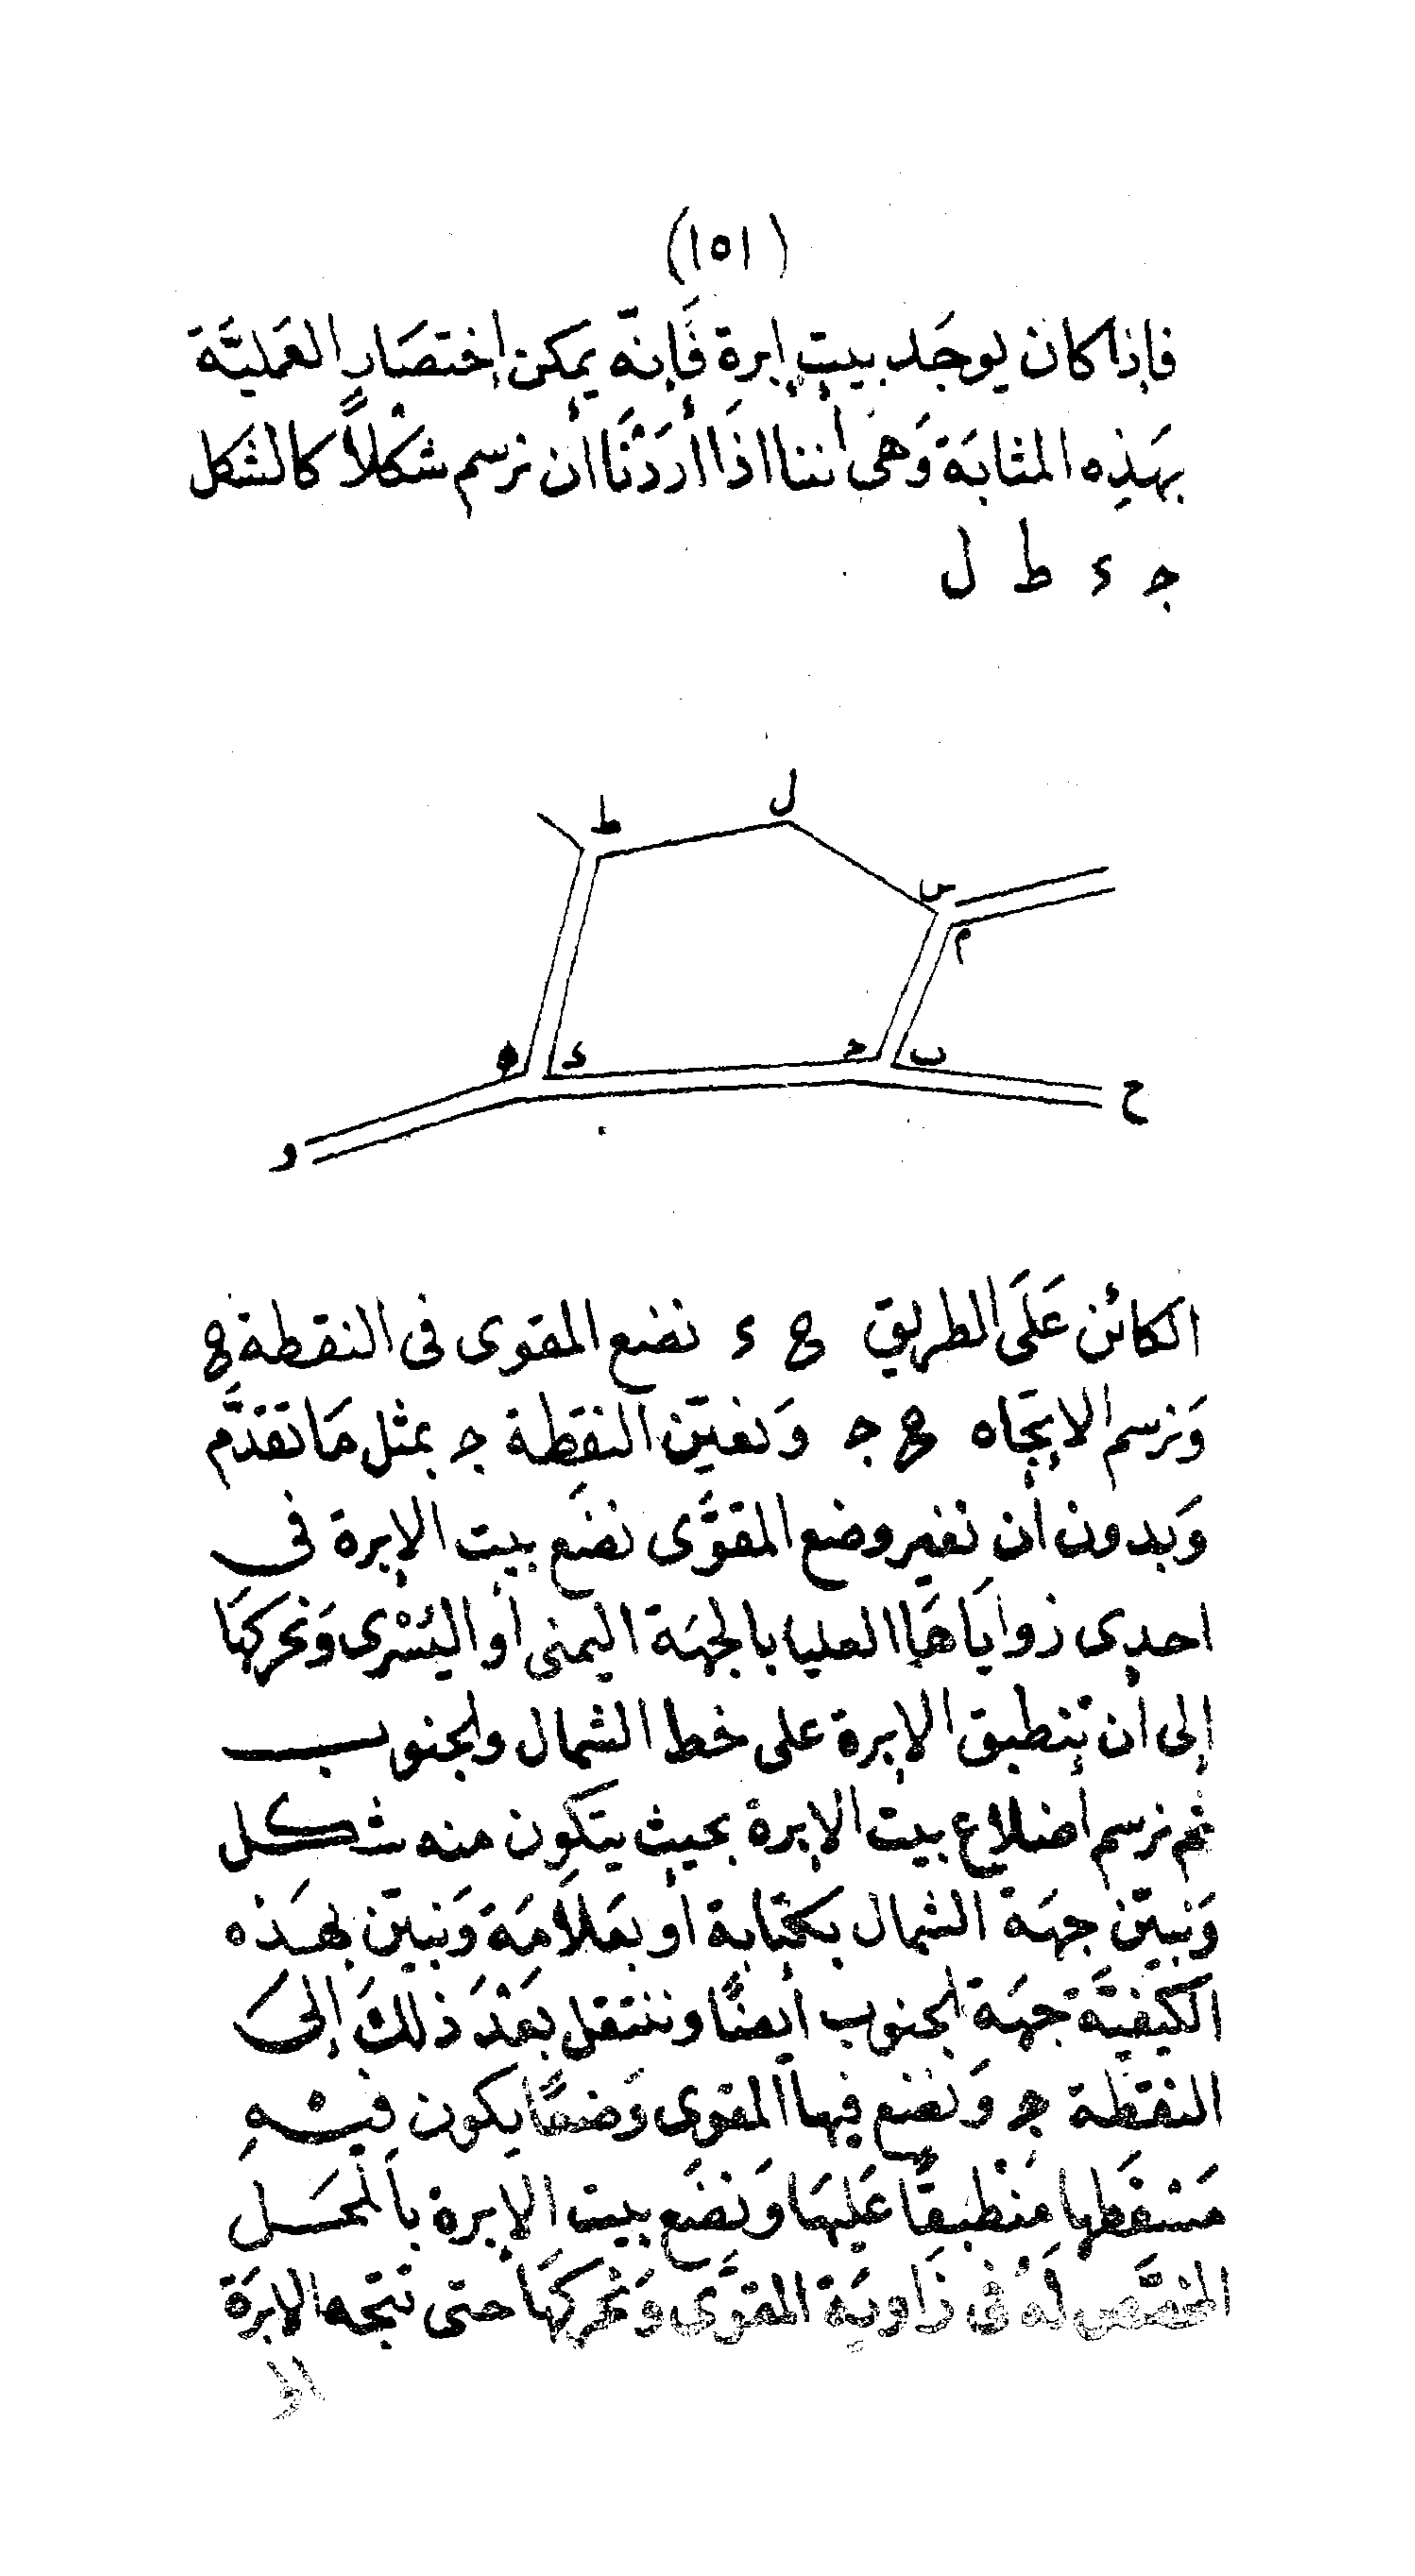 (١٥١)
فإذا كان يوجَد بيت إبرة فَإنّه يمكن إختصَار العَمليَّة
بهَذِه المثابَة وَهى أننا اذَا أرَدْنَا أن نرسم شكْلاً كالشكل
ج ء ط ل
ط ل س م
ه د ج ب ح
و
الكائن عَلَى الطريق ح ء نضع المقوى فى النقطة ح
وَنرسم الاتجاه ح ج وَنعيّن النقطة ج بمثل مَا تقدَّم
وَبدون أن نغير وضع المقوَّى نضَع بيت الإبرة فى
احدى زوايَاهَا العليا بالجهَة اليمنى أو اليسْرى وَنحركهَا
إلى أن تنطبق الإبرة على خط الشمال والجنوب
ثم نرسم أضلاع بيت الإبرة بحيث يتكون منه شكل
وَنبيّن جهَة الشمال بكتابة أو بعَلاَمَة وَنبيّن بهَذه
الكيفيَّة جهَة الجنوب أيضًا وننتقل بعْدَ ذلكَ إلىَ
النقطَة ج وَنضع فيها المقوى وَضعًا يكون فيْهِ
مَسقطها مُنْطبقًا عَليهَا وَنضَع بيت الإبرة بالمحَل
المخصَّص لَهُ فى زَاويَة المقوَّى وَنحركهَا حتى تتجه الابرَة
الى